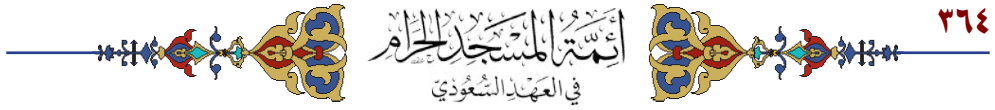 ٣٦٤
أَئِمَّةُ المَسْجِدِ الحَرَامِ
في العَهْدِ السُّعُودِيّ